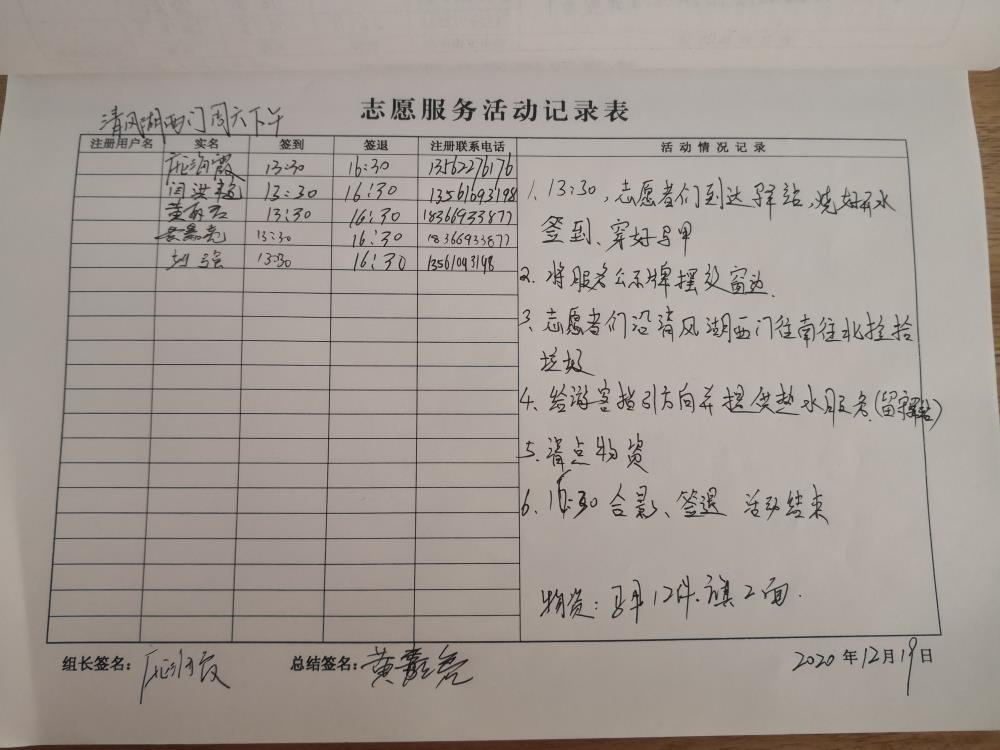 志愿服务活动记录表
清风湖西门周六下午
注册用户名 实名 签到 签退 注册联系电话 活动情况记录
庞海霞 13:30 16:30 13562276176
闫洪 13:30 16:30 13561693198
黄 13:30 16:30 18366933877
黄嘉亮 13:30 16:30 18366933877
刘强 13:30 16:30 13561043148
1、13:30,志愿者们到达驿站,烧好开水
签到、穿好马甲
2、将服务公示牌摆放窗边.
3、志愿者们沿清风湖西门往南往北捡拾
垃圾
4、给游客指引方向并提供热水服务(留守驿站)
5、清点物资
6、16:30 合影、签退 活动结束
物资:马甲12件.旗2面.
组长签名:庞海霞 总结签名:黄嘉亮 2020年12月19日